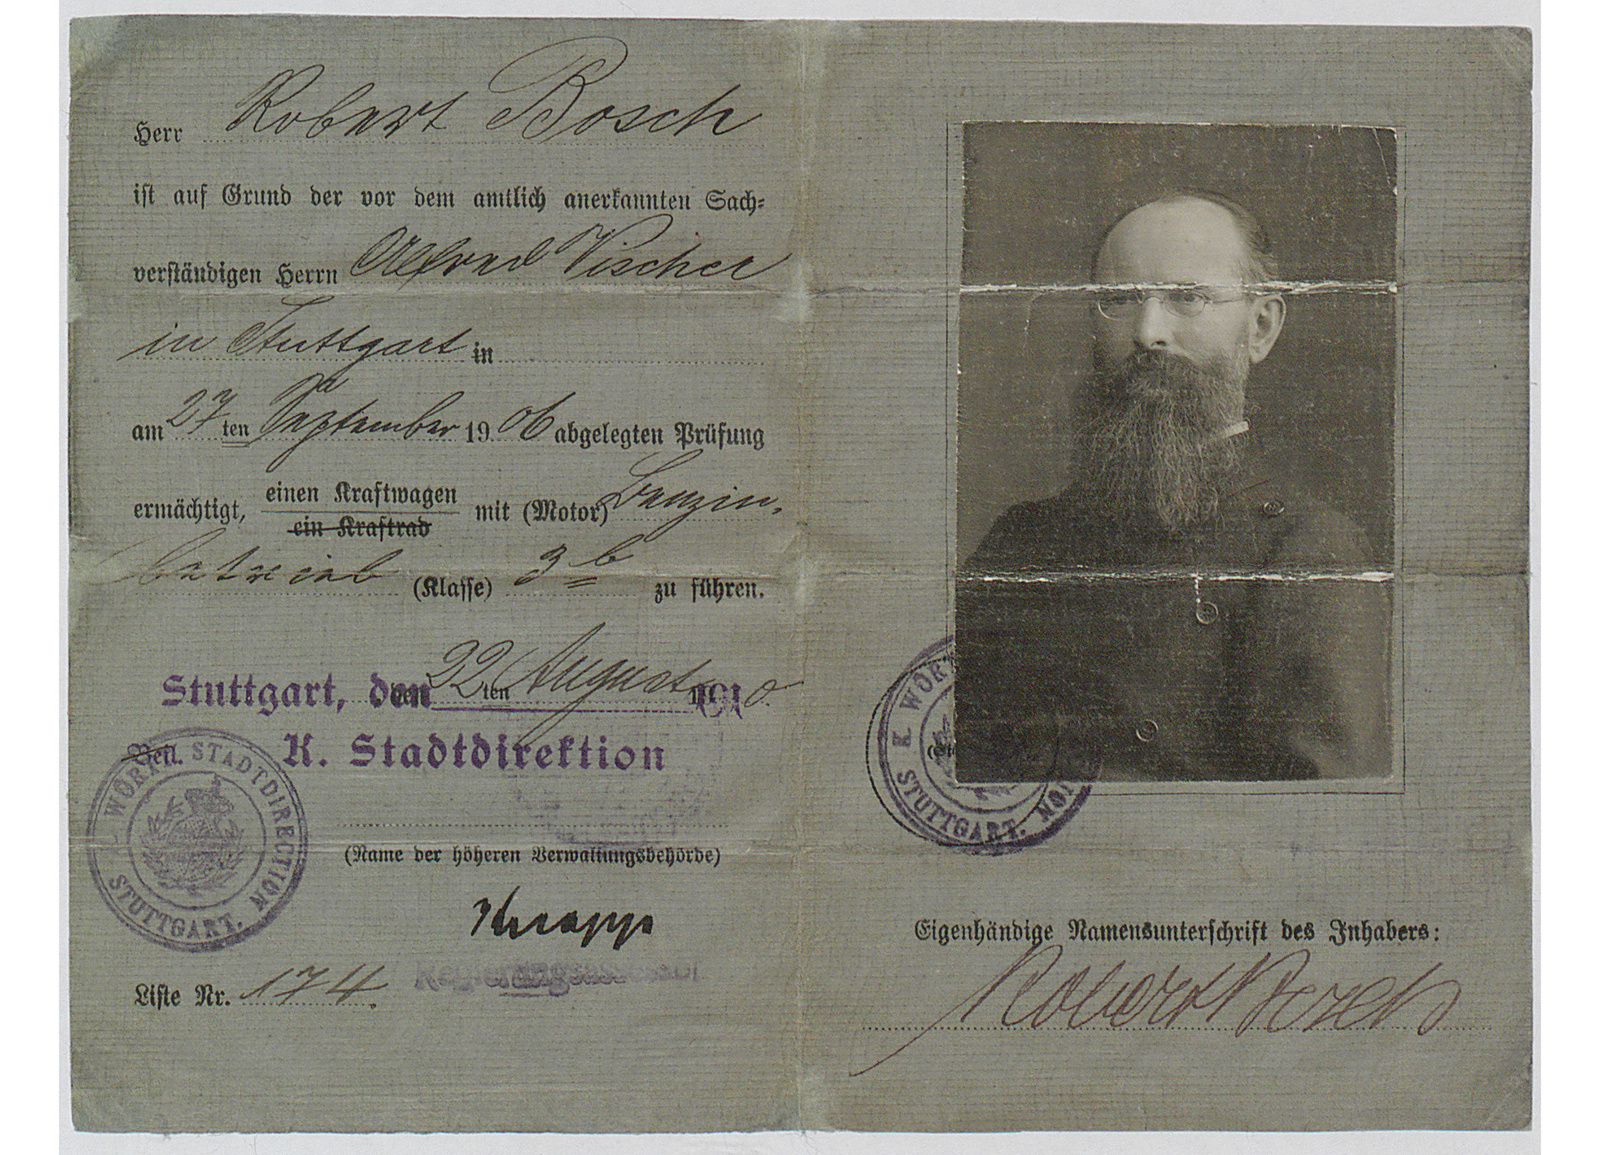 Herr Robert Bosch
ist auf Grund der vor dem amtlich anerkannten Sach-
verständigen Herrn Alfred Vischer
in Stuttgart in
am 27 ten September 1906 abgelegten Prüfung
ermächtigt, einen Kraftwagen mit (Motor) Benzin-
ein Kraftrad
betrieb (Klasse) 3b zu führen.
Stuttgart, den 22 ten August 1910
K. Stadtdirektion
K. WÜRTT. STADTDIRECTION STUTTGART.
(Name der höheren Verwaltungsbehörde)
Knapp
Liste Nr. 174.
K. WÜR
STUTTGART.
Eigenhändige Namensunterschrift des Inhabers:
Robert Bosch